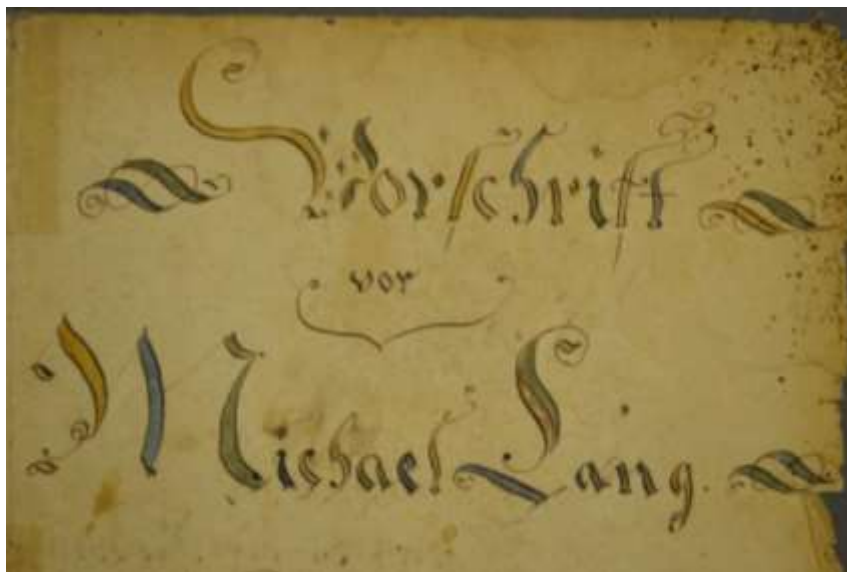 Vorschrift
vor
Michael Lang.